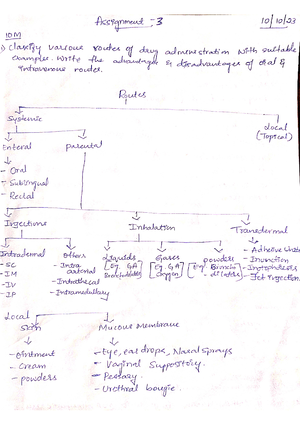 Assignment - 3
10/10/23
10M
1) Classify various routes of drug administration with suitable
examples. Write the advantages & disadvantages of oral &
intravenous routes.
Routes
Systemic
Local
(Topical)
Enteral
parental
- Oral
- Sublingual
- Rectal
Injections
Inhalation
Transdermal
Intradermal
- SC
- IM
- IV
- IP
Others
- Intra
arterial
- Intrathecal
- Intramedullary
Liquids
[Eg. GA
Gases
[Eg. GA
oxygen]
powders
[Eg. Bronchi
- dilators]
- Adhesive units
- Inunction
- Iontophoresis
- Jet injection
Local
Skin
Mucous Membrane
- Ointment
- Cream
- powders
- Eye, ear drops, Nasal sprays
- Vaginal Suppository.
- Pessary.
- Urethral bougie.